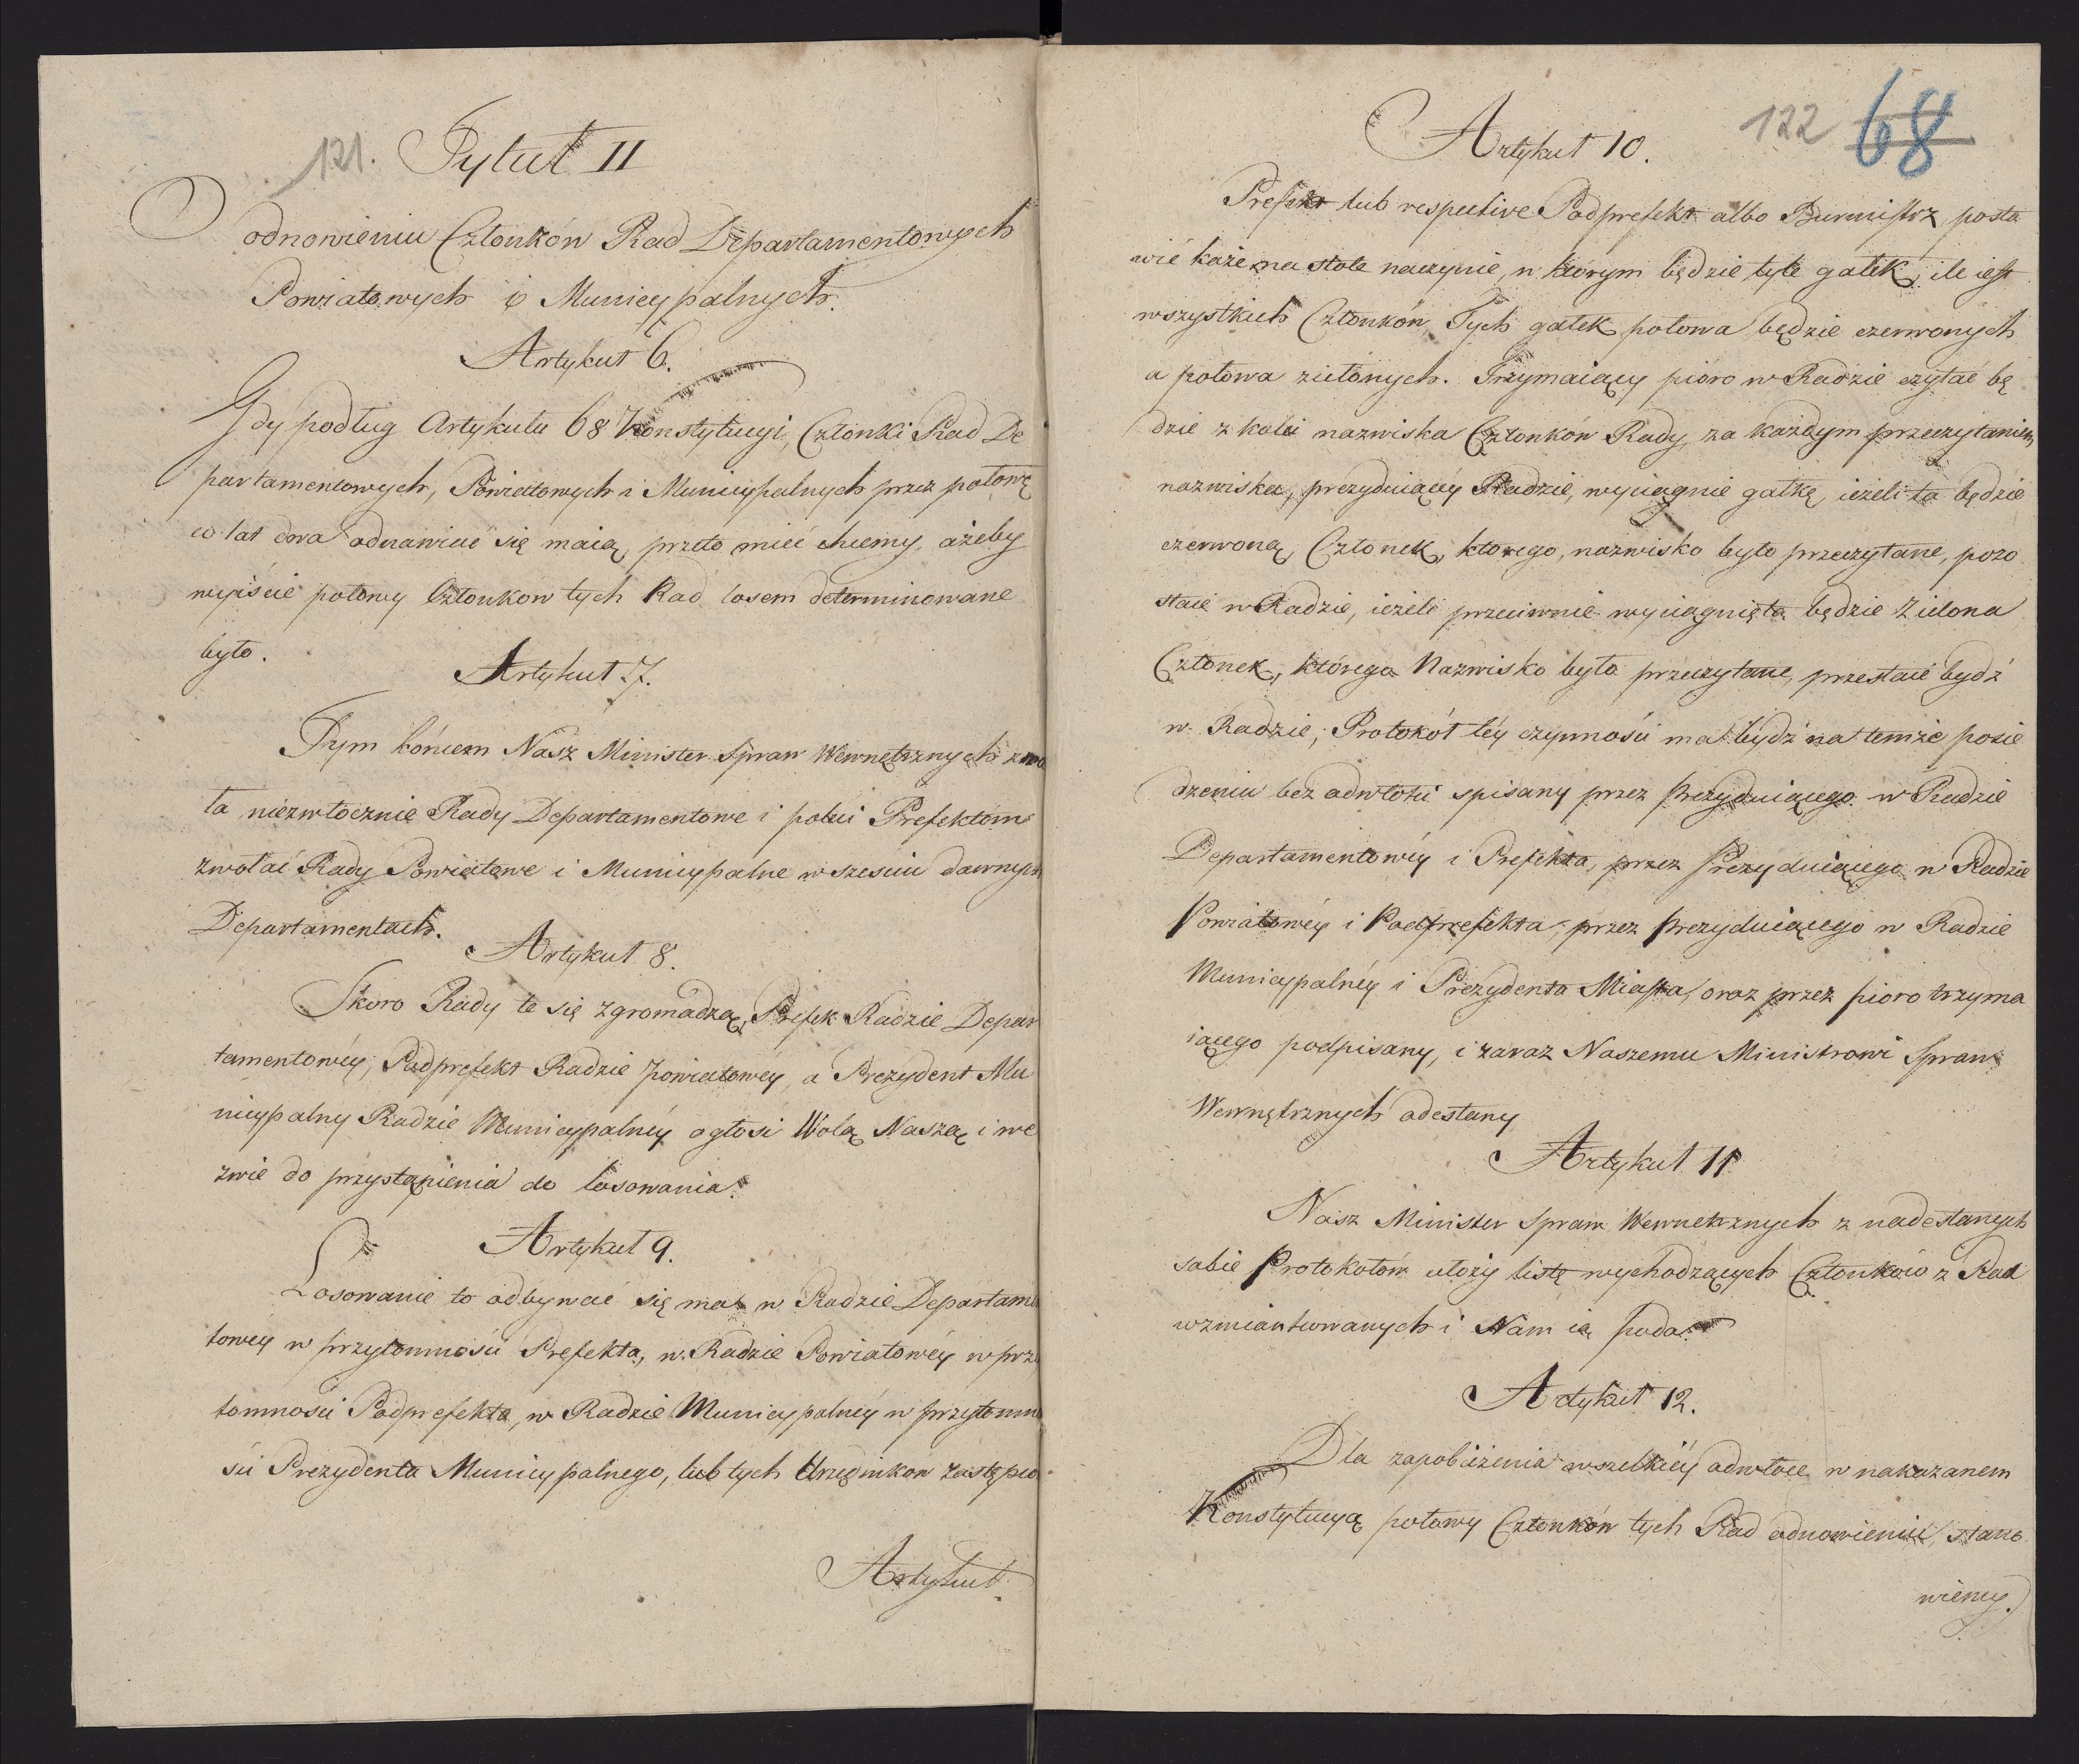 121.
Tytuł II
O odnowieniu Członków Rad Departamentowych
Powiatowych i Municypalnych.
Artykuł 6.
Gdy podług Artykułu 68 Konstytucyi, Członki Rad De
partamentowych, Powiatowych i Municypalnych przez połowę
co lat dwa odnawiać się maią, przeto mieć chcemy, ażeby
wyiście połowy Członkow tych Rad losem determinowane
było.
Artykuł 7.
Tym końcem Nasz Minister Spraw Wewnętrznych zwo
ła niezwłocznie Rady Departamentowe i poleci Prefektom
zwołać Rady Powiatowe i Municypalne w sześciu dawnych
Departamentach.
Artykuł 8.
Skoro Rady te się zgromadzą, Prefek Radzie Depar
tamentowéy, Podprefekt Radzie Powiatowéy, a Prezydent Mu
nicypalny Radzie Municypalnéy ogłosi Wolą Naszą i we
zwie do przystąpienia do losowania.
Artykuł 9.
Losowanie to odbywać się ma w Radzie Departamen
towey w przytomności Prefekta, w Radzie Powiatowéy w przy
tomności Podprefekta, w Radzie Municypalnéy w przytomno
ści Prezydenta Municypalnego, lub tych Urzędników Zastępców
Artykuł
122 68
Artykuł 10.
Prefekt lub respective Podprefekt albo Burmistrz posta
wić każe na stole naczynie, w którym będzie tyle gałek, ile iest
wszystkich Członków, Tych gałek połowa będzie czerwonych
a połowa zielonych. Trzymaiący pióro w Radzie czytać bę
dzie z kolei nazwiska Członków Rady, za każdym przeczytaniem
nazwiska, prezyduiący Radzie, wyciągnie gałkę, ieżeli ta będzie
czerwoną, Członek, ktorego, nazwisko było przeczytane, pozo
staie w Radzie, ieżeli przeciwnie wyciągnięta będzie Zielona
Członek, którego Nazwisko było przeczytane, przestaie bydź
w Radzie; Protokół téy czynności ma bydź na temże posie
dzeniu bez odwłoki spisany przez Prezyduiącego w Radzie
Departamentowéy i Prefekta, przez Prezyduiącego w Radzie
Powiatowéy i Podprefekta, przez Prezyduiącego w Radzie
Municypalnéy i Prezydenta Miasta, oraz przez pioro trzyma
iącego podpisany, i zaraz Naszemu Ministrowi Spraw
Wewnętrznych odesłany
Artykuł 11
Nasz Minister Spraw Wewnetrznych z nadesłanych
sobie Protokołów ułoży listę wychodzących Członków z Rad
wzmiankowanych i Nam ią poda.
Artykuł 12.
Dla zapobieżenia wszelkiéy odwłoce w nakazanem
Konstytucyą połowy Członków tych Rad odnowieniu, stano
wiemy.